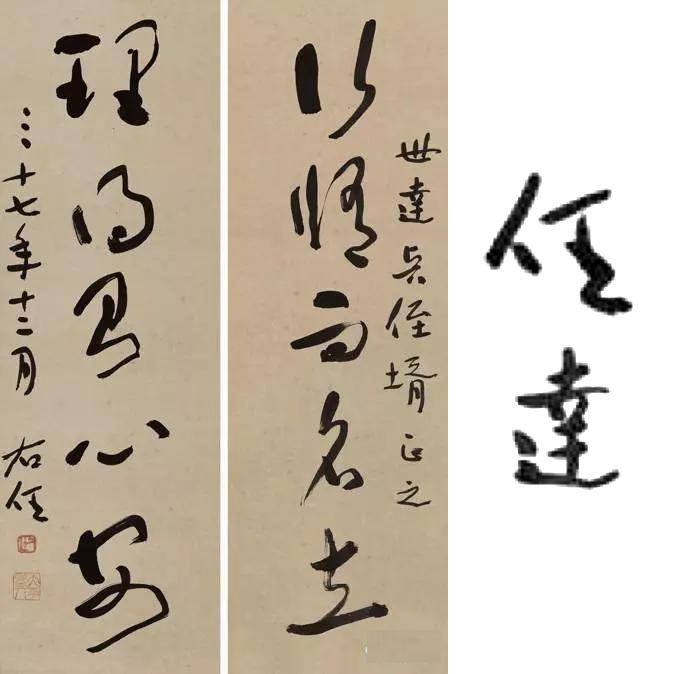 世達吳侄壻正之
行脩而名立
理得則心安
三十七年十二月 右任
任達